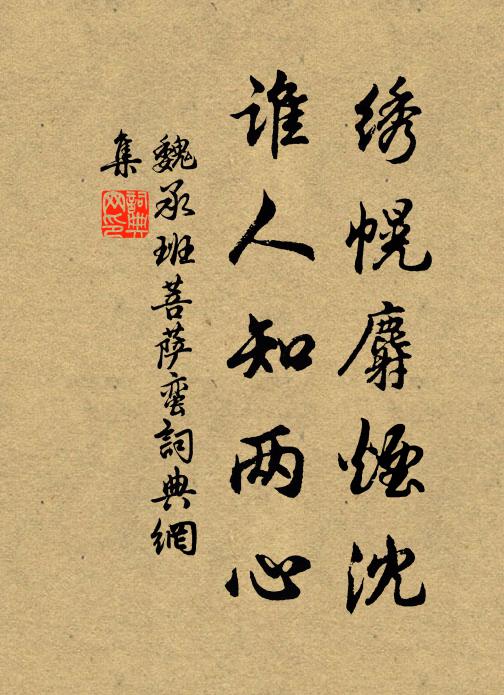 绣幌麝煙沈
谁人知两心
魏承班菩萨蛮詞典網
集
詞典
网印